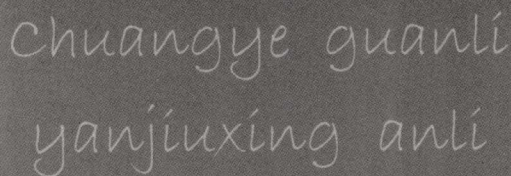 Chuangye guanli
yanjiuxing anli